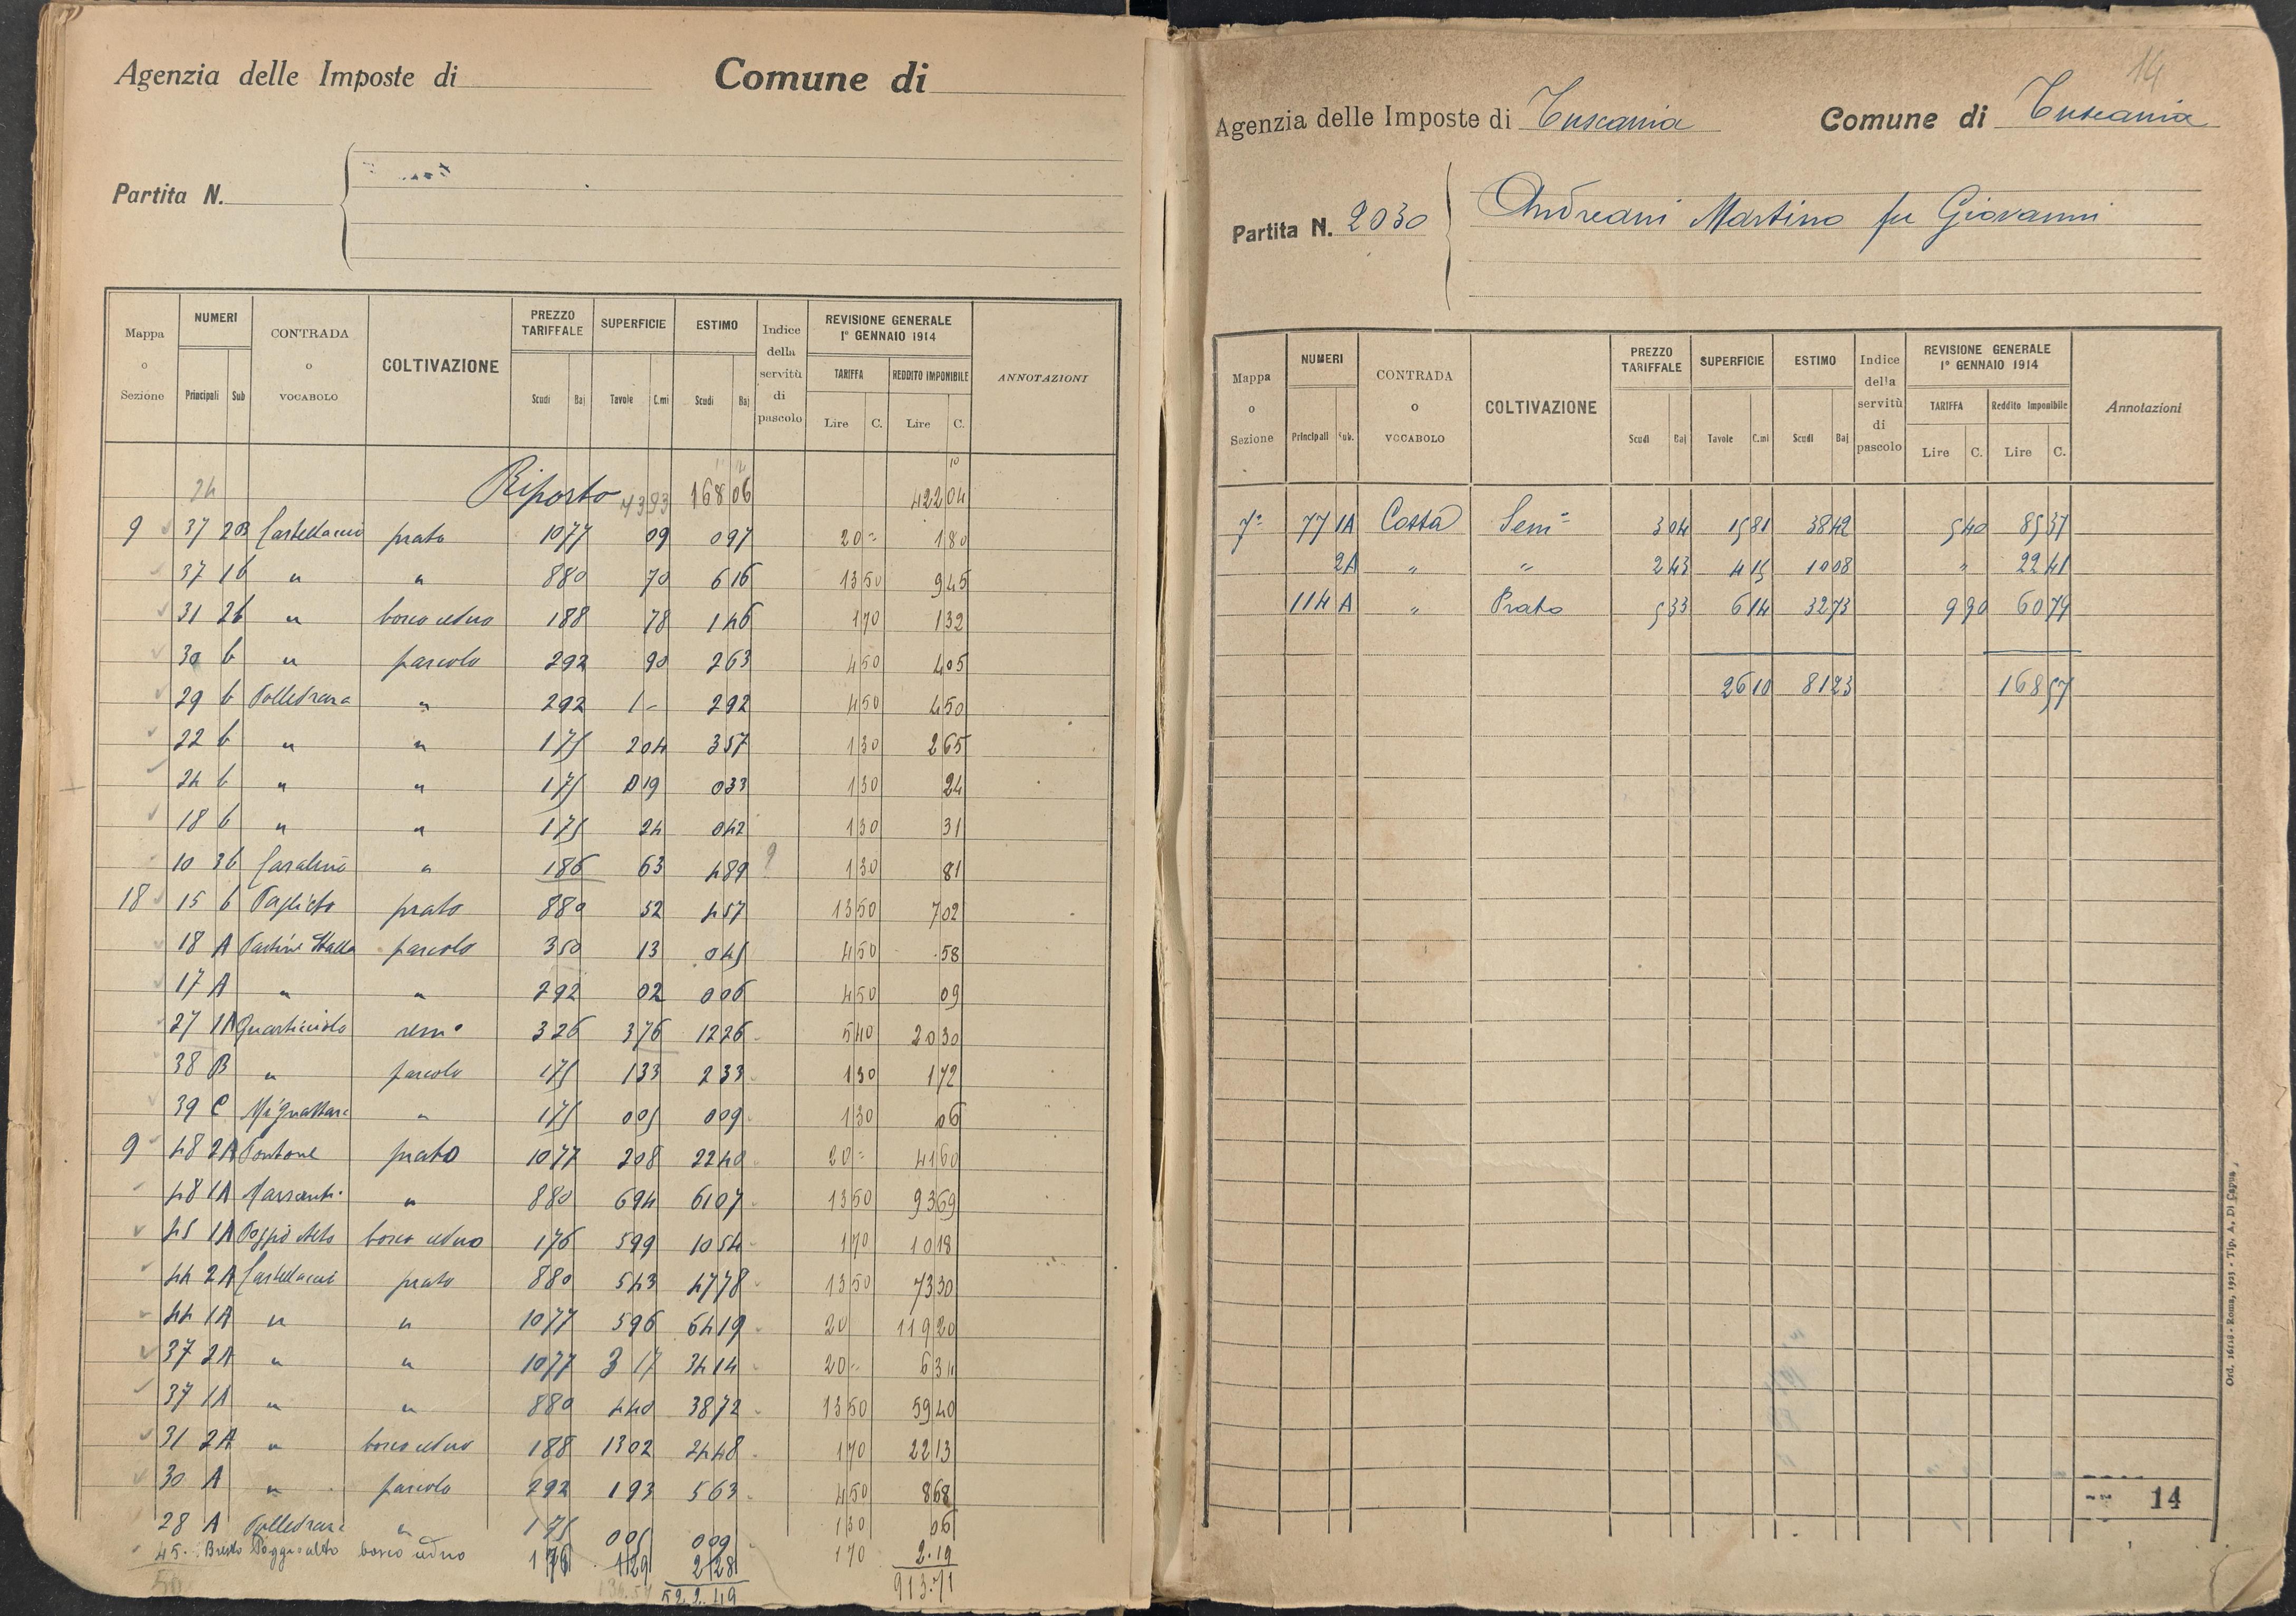 Agenzia delle Imposte di Comune di
Partita N.
Mappa o Sezione NUMERI Principali Sub CONTRADA o VOCABOLO COLTIVAZIONE PREZZO TARIFFALE Scudi Baj SUPERFICIE Tavole C.mi ESTIMO Scudi Baj Indice della servitù di pascolo REVISIONE GENERALE 1° GENNAIO 1914 TARIFFA Lire C. REDDITO IMPONIBILE Lire C. ANNOTAZIONI
24 Riporto 4393 168 06 422 04
9 37 2B Castellaccio prato 10 77 09 0 97 20 = 1 80
37 1b " " 8 80 70 6 16 13 50 9 45
31 2b " bosco ceduo 1 88 78 1 46 1 70 1 32
30 b " pascolo 2 92 90 2 63 4 50 4 05
29 b Polledrara " 2 92 1 - 2 92 4 50 4 50
22 b " " 1 75 2 04 3 57 1 30 2 65
24 b " " 1 75 0 19 0 33 1 30 24
18 b " " 1 75 24 0 42 1 30 31
10 3b " 1 86 63 4 89 ? 1 30 81
18 15 b Paglieto prato 8 80 52 4 57 13 50 7 02
18 A pascolo 3 50 13 0 45 4 50 58
17 A " " 2 92 02 0 06 4 50 09
27 1A Quarticciolo sem° 3 26 3 76 12 26 5 40 20 30
38 B " pascolo 1 75 1 33 2 33 1 30 1 72
39 C " 1 75 0 05 0 09 1 30 06
9 48 2A Pontone prato 10 77 2 08 22 40 20 = 41 60
48 1A " 8 80 6 94 61 07 13 50 93 69
45 1A Poggio Alto bosco ceduo 1 76 5 99 10 54 1 70 10 18
44 2A Castellacci prato 8 80 5 43 47 78 13 50 73 30
44 1A " " 10 77 5 96 64 19 20 119 20
37 2A " " 10 77 3 17 34 14 20 = 63 4
37 1A " " 8 80 4 40 38 72 13 50 59 40
31 2A " bosco ceduo 1 88 13 02 24 48 1 70 22 13
30 A " pascolo 2 92 1 93 5 63 4 50 8 68
28 A Polledrara " 1 75 0 05 0 09 1 30 06
45. Poggio alto bosco ceduo 1 76 1 29 2 28 1 70 2.19
50 522.49 913.71
14
Agenzia delle Imposte di Tuscania Comune di Tuscania
Partita N. 2030 Andreani Martino fu Giovanni
Mappa o Sezione NUMERI Principali Sub. CONTRADA o VOCABOLO COLTIVAZIONE PREZZO TARIFFALE Scudi Baj SUPERFICIE Tavole C.mi ESTIMO Scudi Baj Indice della servitù di pascolo REVISIONE GENERALE 1° GENNAIO 1914 TARIFFA Lire C. Reddito Imponibile Lire C. Annotazioni
7ª 77 1A Costa Sem= 3 04 15 81 38 42 5 40 85 37
2A " " 2 43 4 15 10 08 " 22 41
114 A " Prato 5 33 6 14 32 73 9 90 60 79
26 10 81 23 168 57
14
Ord. 16118 - Roma, 1923 - Tip. A. Di Capua